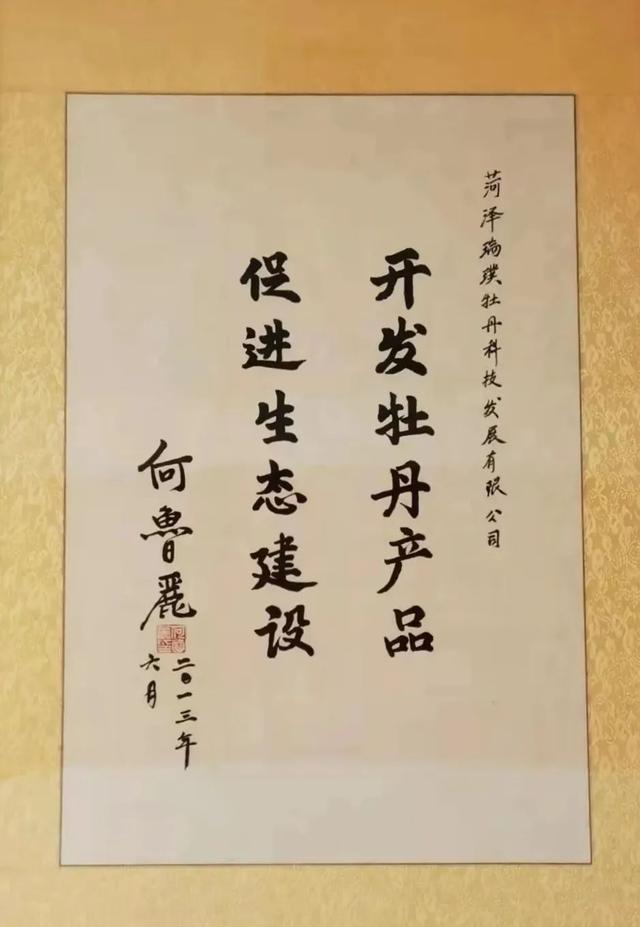 菏泽瑞璞牡丹科技发展有限公司
开发牡丹产品
促进生态建设
何鲁麗
二〇一三年
六月